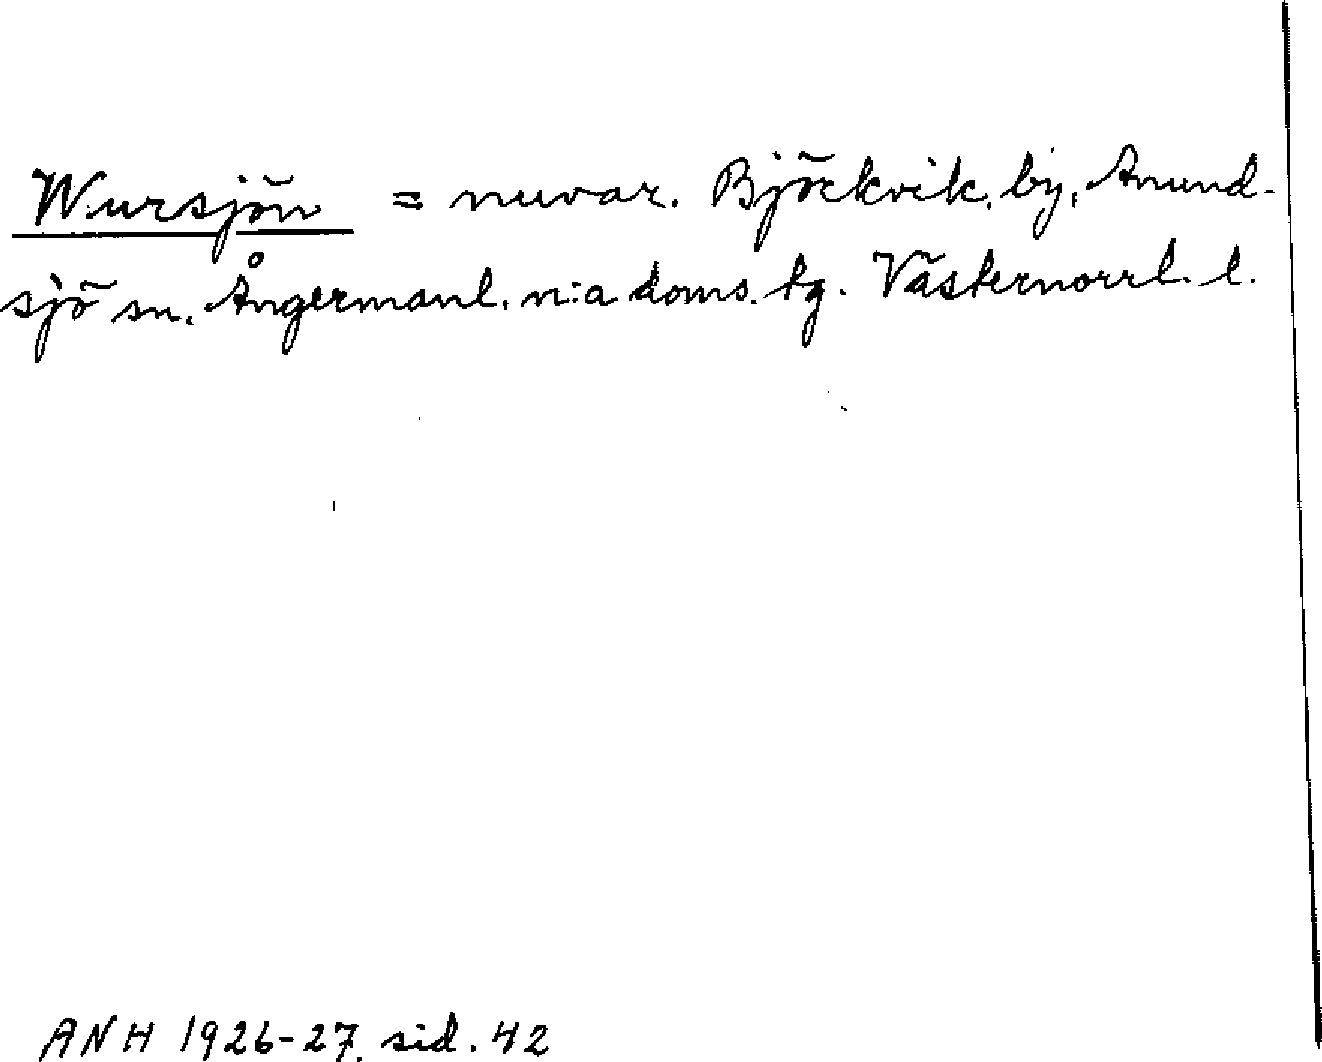 Wursjön = nuvar. Bjöckvik, by, Anund-
sjö sn. Ångermanl. n:a doms. tg. Västernorrl. l.
ANH 1926-27. sid. 42